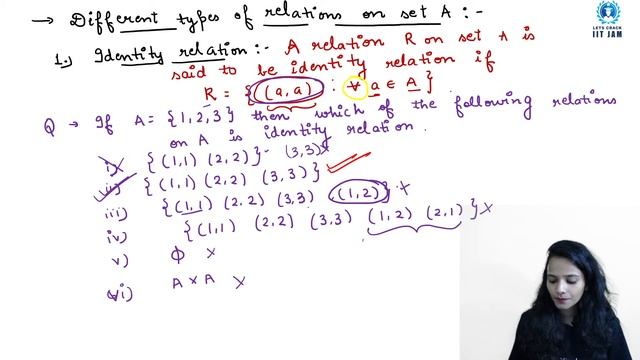 → Different types of relations on set A :-
1.) Identity relation :- A relation R on set A is
said to be identity relation if
R = { (a,a) : ∀ a ∈ A }
Q → If A = {1,2,3} then which of the following relations
on A is identity relation.
i) { (1,1) (2,2) } - (3,3) x
ii) { (1,1) (2,2) (3,3) } ✓
iii) { (1,1) (2,2) (3,3) (1,2) } x
iv) { (1,1) (2,2) (3,3) (1,2) (2,1) } x
v) ϕ x
vi) A × A x
LETS CRACK
IIT JAM